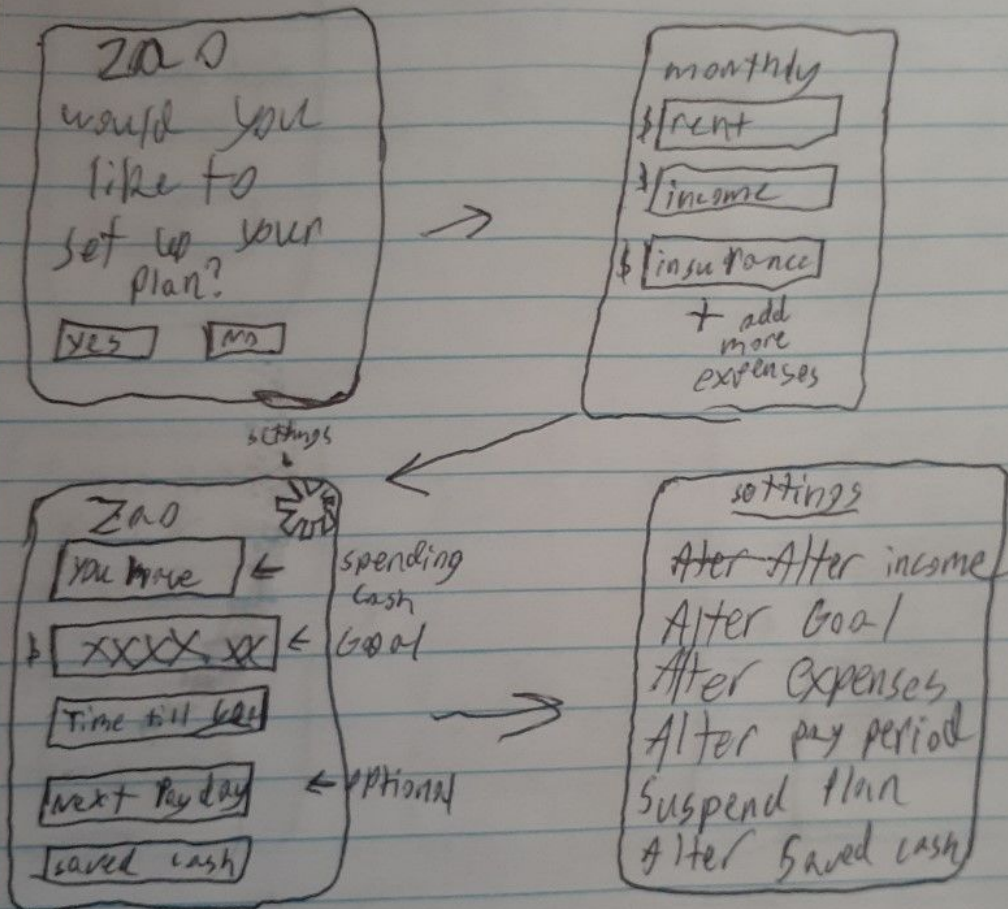 Zao
would you
like to
set up your
plan?
yes
No
monthly
$ rent
$ income
$ insurance
+ add
more
expenses
settings
Zao
You have
spending
cash
$ XXXX.XX
Goal
Time till
Next Payday
optional
saved cash
settings
Ater Alter income
Alter Goal
Alter expenses
Alter pay period
Suspend Plan
Alter Saved cash